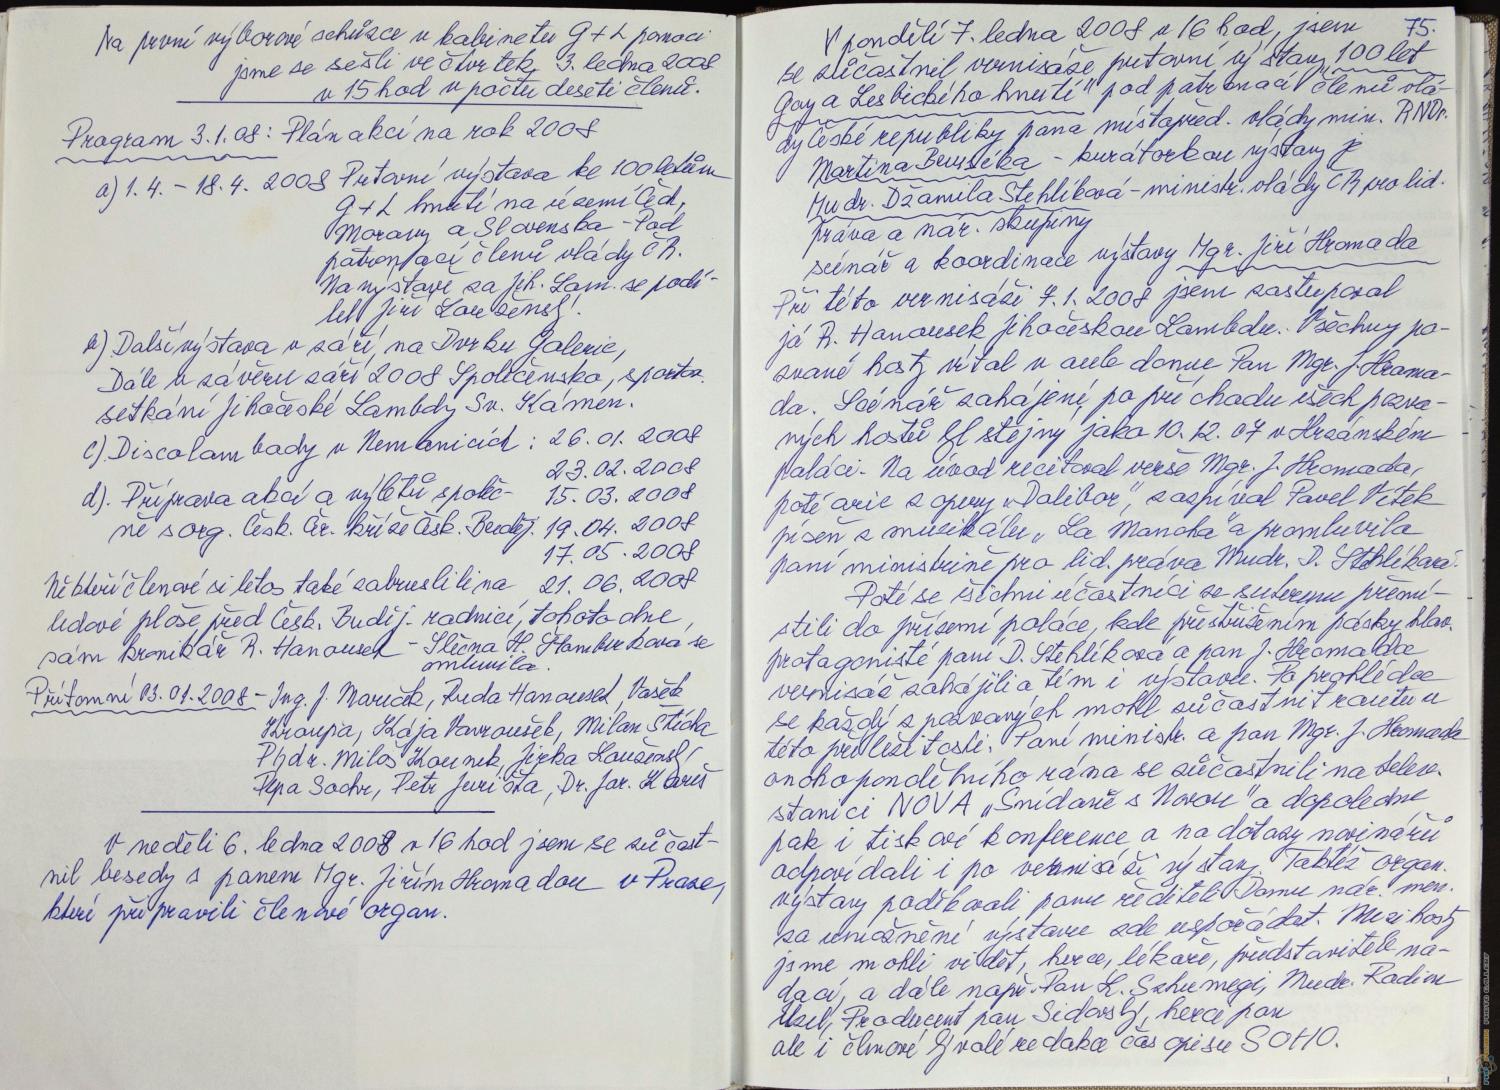 Na první výborové schůzce v kabinetu G+L pomoci
jsme se sešli ve čtvrtek 3. ledna 2008
v 15 hod v počtu deseti členů.
Program 3.1.08: Plán akcí na rok 2008
a) 1.4. – 18.4. 2008 Putovní výstava ke 100 letům
G+L hnutí na území Čech,
Moravy a Slovenska – Pod
patronací členů vlády ČR.
Na výstavě za Jih. Lam. se podí-
lel Jiří Louženský.
b) Další výstava v září, na Dvrku Galerie,
Dále v závěru září 2008 Společensko, sportov.
setkání Jihočeské Lambdy Sv. Kámen.
c). Discolambady v Nemanicích: 26.01.2008
23.02.2008
d). Příprava akcí a výletů společ- 15.03.2008
ně s org. Česk. Čr. kříže Česk. Buděj. 19.04.2008
17.05.2008
Někteří členové si letos také zabruslili na 21.06.2008
ledové ploše před Česk. Buděj. radnicí, tohoto dne
sám kronikář R. Hanousek – Slečna H. se
omluvila.
Přítomni 03.01.2008 – Ing. J. Mareček, Ruda Hanousek, Vašek
Kroupa, Kája Vavroušek, Milan Štícha
Phdr. Miloš Kouník, Jirka Louženský,
Pepa Sochr, Petr Jurišta, Dr. Jar. Klareš
V neděli 6. ledna 2008 v 16 hod jsem se zúčast-
nil besedy s panem Mgr. Jiřím Hromadou v Praze,
kteří připravili členové organ.
75.
V pondělí 7. ledna 2008 v 16 hod, jsem
se zúčastnil vernisáže, putovní výstavy "100 let
Gay a Lesbického hnutí" pod patronací členů vlá-
dy České republiky pana místopřed. vlády min. RNDr.
Martina Bursíka – kurátorkou výstavy je
Mudr. Džamila Stehlíková – ministr. vlády ČR pro lid.
práva a nár. skupiny
scénář a koordinace výstavy Mgr. Jiří Hromada
Při této vernisáži 7.1.2008 jsem zastupoval
já R. Hanousek Jihočeskou Lambdu. Všechny po-
zvané hosty vítal v aule domu Pan Mgr. J. Hroma-
da. Scénář zahájení, po příchodu všech pozva-
ných hostů byl stejný jako 10.12.07 v Hrzánském
paláci. Na úvod recitoval verše Mgr. J. Hromada,
poté arie z opery „Dalibor", zazpíval Pavel Vítek
píseň z muzikálu „La Mancha" a promluvila
paní ministrině pro lid. práva Mudr. D. Stehlíková.
Poté se všichni účastníci ze suterenu přemí-
stili do přízemí paláce, kde přestřižením pásky hlav.
protagonisté paní D. Stehlíková a pan J. Hromada
vernisáž zahájili a tím i výstavu. Po prohlídce
se každý z pozvaných mohl zúčastnit rautu u
této příležitosti. Paní ministr. a pan Mgr. J. Hromada
onoho pondělního rána se zúčastnili na telev.
stanici NOVA „Snídaně s Novou" a dopoledne
pak i tiskové konference a na dotazy novinářů
odpovídali i po vernisáži výstavy. Taktéž organ.
výstavy poděkovali panu řediteli Domu nár. men.
za umožnění výstavu zde uspořádat. Mezi hosty
jsme mohli vidět, herce, lékaře, představitele na-
dací, a dále např. Pan L. Mudr. Radim
Uzel, Producent pan Sidovský, herce pan
ale i členové bývalé redakce časopisu SOHO.
PHOTO GALLERY